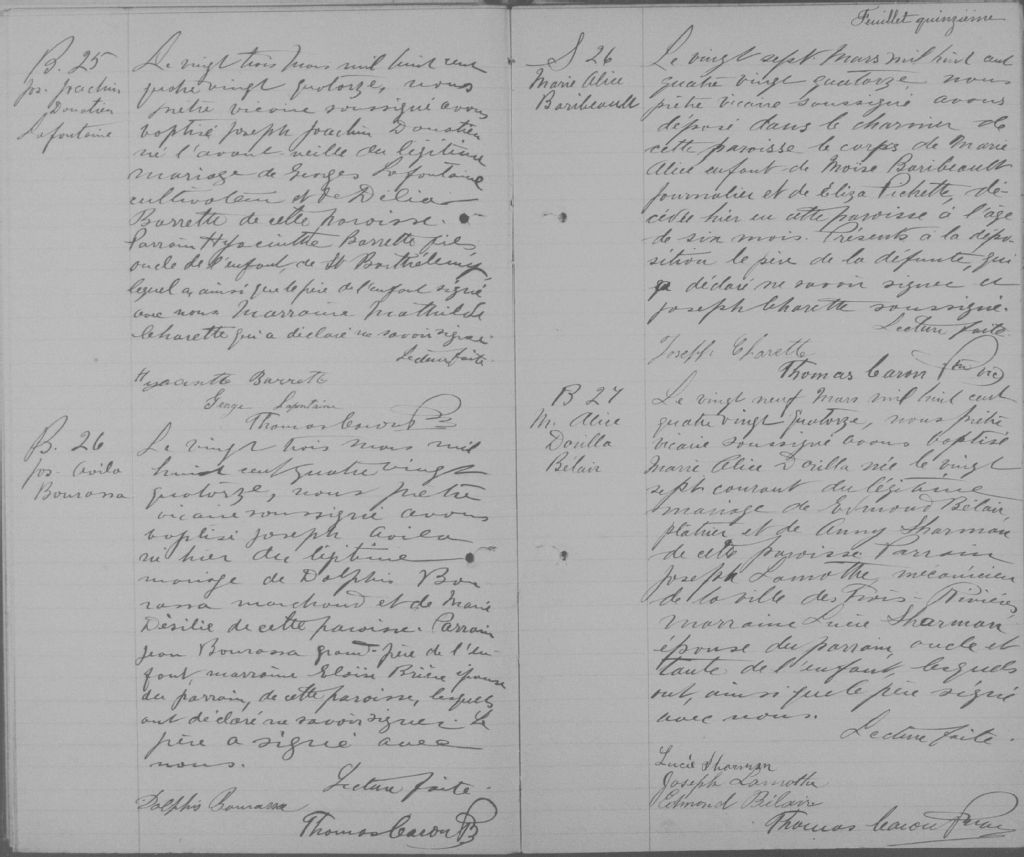 B. 25
Jos. Joachin
Donatien
Lafontaine
Le vingt trois Mars mil huit cent
quatre vingt quatorze, nous
prêtre vicaire soussigné avons
baptisé Joseph Joachin Donatien
né l'avant-veille du légitime
mariage de Georges Lafontaine
cultivateur et de Délia
Barrette de cette paroisse.
Parrain Hyacinthe Barrette fils
oncle de l'enfant, de St Barthélémy
lequel a, ainsi que le père de l'enfant signé
avec nous Marraine Mathilde
Charette qui a déclaré ne savoir signer.
Lecture faite.
Hyacinthe Barrette
George Lafontaine
Thomas Caron
B. 26
Jos. Avila
Bourassa
Le vingt trois mars mil
huit cent quatre vingt
quatorze, nous prêtre
vicaire soussigné avons
baptisé Joseph Avila
né hier du légitime
mariage de Dolphis Bou
rassa marchand et de Marie
Désilie de cette paroisse. Parrain
Jean Bourassa grand-père de l'en-
fant, marraine Eloïse Brière épouse
du parrain, de cette paroisse, lesquels
ont déclaré ne savoir signer. Le
père a signé avec
nous.
Lecture faite.
Dolphis Bourassa
Thomas Caron
Feuillet quinzième
S 26
Marie Alice
Baribeault
Le vingt sept Mars mil huit cent
quatre vingt quatorze, nous
prêtre vicaire soussigné avons
déposé dans le charnier de
cette paroisse le corps de Marie
Alice enfant de Moïse Baribeault
journalier et de Eliza Pichette, dé-
cédée hier en cette paroisse à l'âge
de six mois. Présents à la dépo-
sition le père de la défunte, qui
a déclaré ne savoir signer et
Joseph Charette soussigné.
Lecture faite.
Joseph Charette
Thomas Caron
B 27
M. Alice
Dorilla
Bélair
Le vingt neuf Mars mil huit cent
quatre vingt quatorze, nous prêtre
vicaire soussigné avons baptisé
Marie Alice Dorilla née le vingt
sept courant du légitime
mariage de Edmond Bélair
plâtrier et de Anny Sharman
de cette paroisse Parrain
Joseph Lamothe, mécanicien
de la ville des Trois-Rivières,
marraine Lucie Sharman
épouse du parrain, oncle et
tante de l'enfant, lesquels
ont, ainsi que le père signé
avec nous.
Lecture faite.
Lucie Sharman
Joseph Lamothe
Edmond Bélair
Thomas Caron